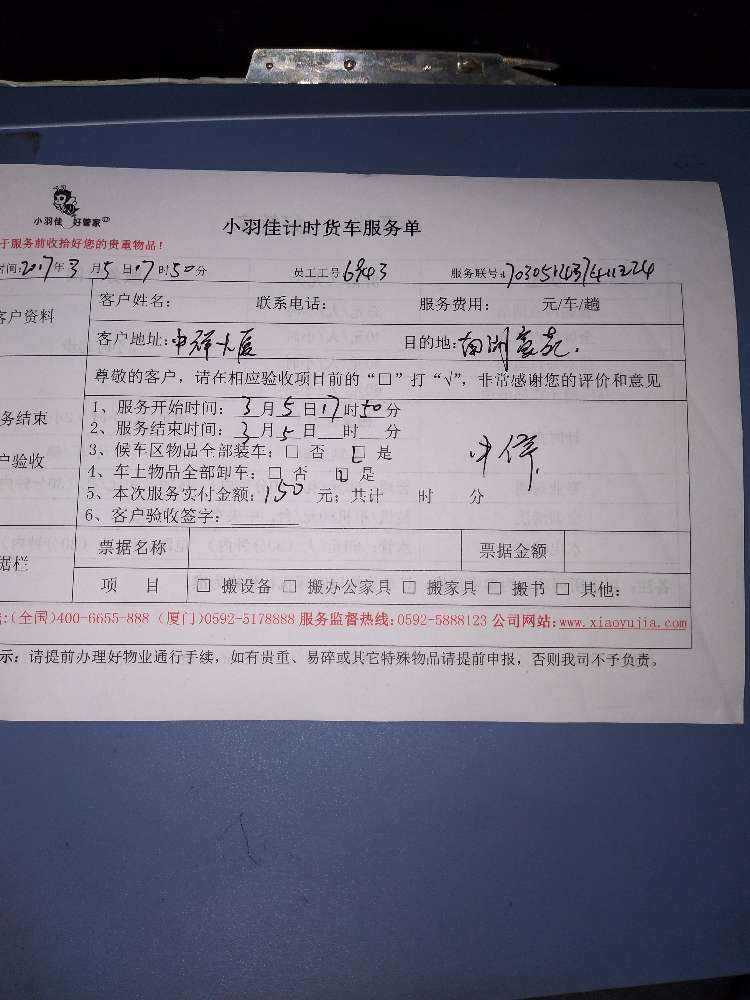 小羽佳 好管家
小羽佳计时货车服务单
于服务前收拾好您的贵重物品！
时间:2017年3月5日17时50分 员工工号6943 服务联号:
客户资料 客户姓名： 联系电话： 服务费用： 元/车/趟
客户地址:申祥大厦 目的地:南湖豪苑.
尊敬的客户，请在相应验收项目前的“□”打“√”，非常感谢您的评价和意见
务结束
户验收
1、服务开始时间：3月5日17时50分
2、服务结束时间：3月5日__时__分
3、候车区物品全部装车：□ 否 □ 是
4、车上物品全部卸车：□ 否 □ 是
5、本次服务实付金额：150元；共计 时 分
6、客户验收签字：
据栏 票据名称 票据金额
项 目 □ 搬设备 □ 搬办公家具 □ 搬家具 □ 搬书 □ 其他：
:(全国)400-6655-888 (厦门)0592-5178888 服务监督热线:0592-5888123 公司网站:www.xiaoyujia.com
示：请提前办理好物业通行手续，如有贵重、易碎或其它特殊物品请提前申报，否则我司不予负责。